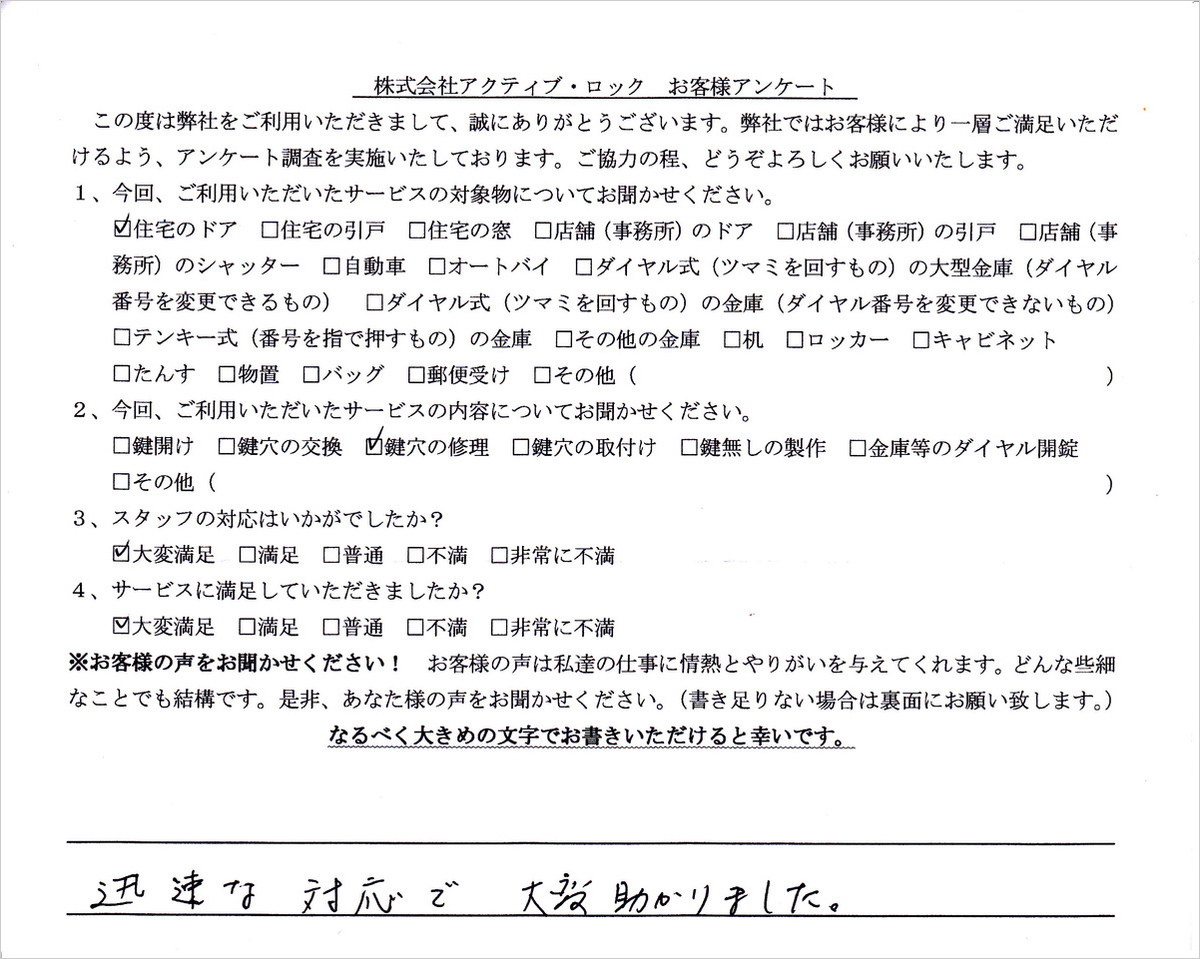 株式会社アクティブ・ロック　お客様アンケート
この度は弊社をご利用いただきまして、誠にありがとうございます。弊社ではお客様により一層ご満足いただ
けるよう、アンケート調査を実施いたしております。ご協力の程、どうぞよろしくお願いいたします。
１、今回、ご利用いただいたサービスの対象物についてお聞かせください。
☑住宅のドア　□住宅の引戸　□住宅の窓　□店舗（事務所）のドア　□店舗（事務所）の引戸　□店舗（事
務所）のシャッター　□自動車　□オートバイ　□ダイヤル式（ツマミを回すもの）の大型金庫（ダイヤル
番号を変更できるもの）　□ダイヤル式（ツマミを回すもの）の金庫（ダイヤル番号を変更できないもの）
□テンキー式（番号を指で押すもの）の金庫　□その他の金庫　□机　□ロッカー　□キャビネット
□たんす　□物置　□バッグ　□郵便受け　□その他（　）
２、今回、ご利用いただいたサービスの内容についてお聞かせください。
□鍵開け　□鍵穴の交換　☑鍵穴の修理　□鍵穴の取付け　□鍵無しの製作　□金庫等のダイヤル開錠
□その他（　）
３、スタッフの対応はいかがでしたか？
☑大変満足　□満足　□普通　□不満　□非常に不満
４、サービスに満足していただきましたか？
☑大変満足　□満足　□普通　□不満　□非常に不満
※お客様の声をお聞かせください！　お客様の声は私達の仕事に情熱とやりがいを与えてくれます。どんな些細
なことでも結構です。是非、あなた様の声をお聞かせください。（書き足りない場合は裏面にお願い致します。）
なるべく大きめの文字でお書きいただけると幸いです。
迅速な対応で　大変助かりました。